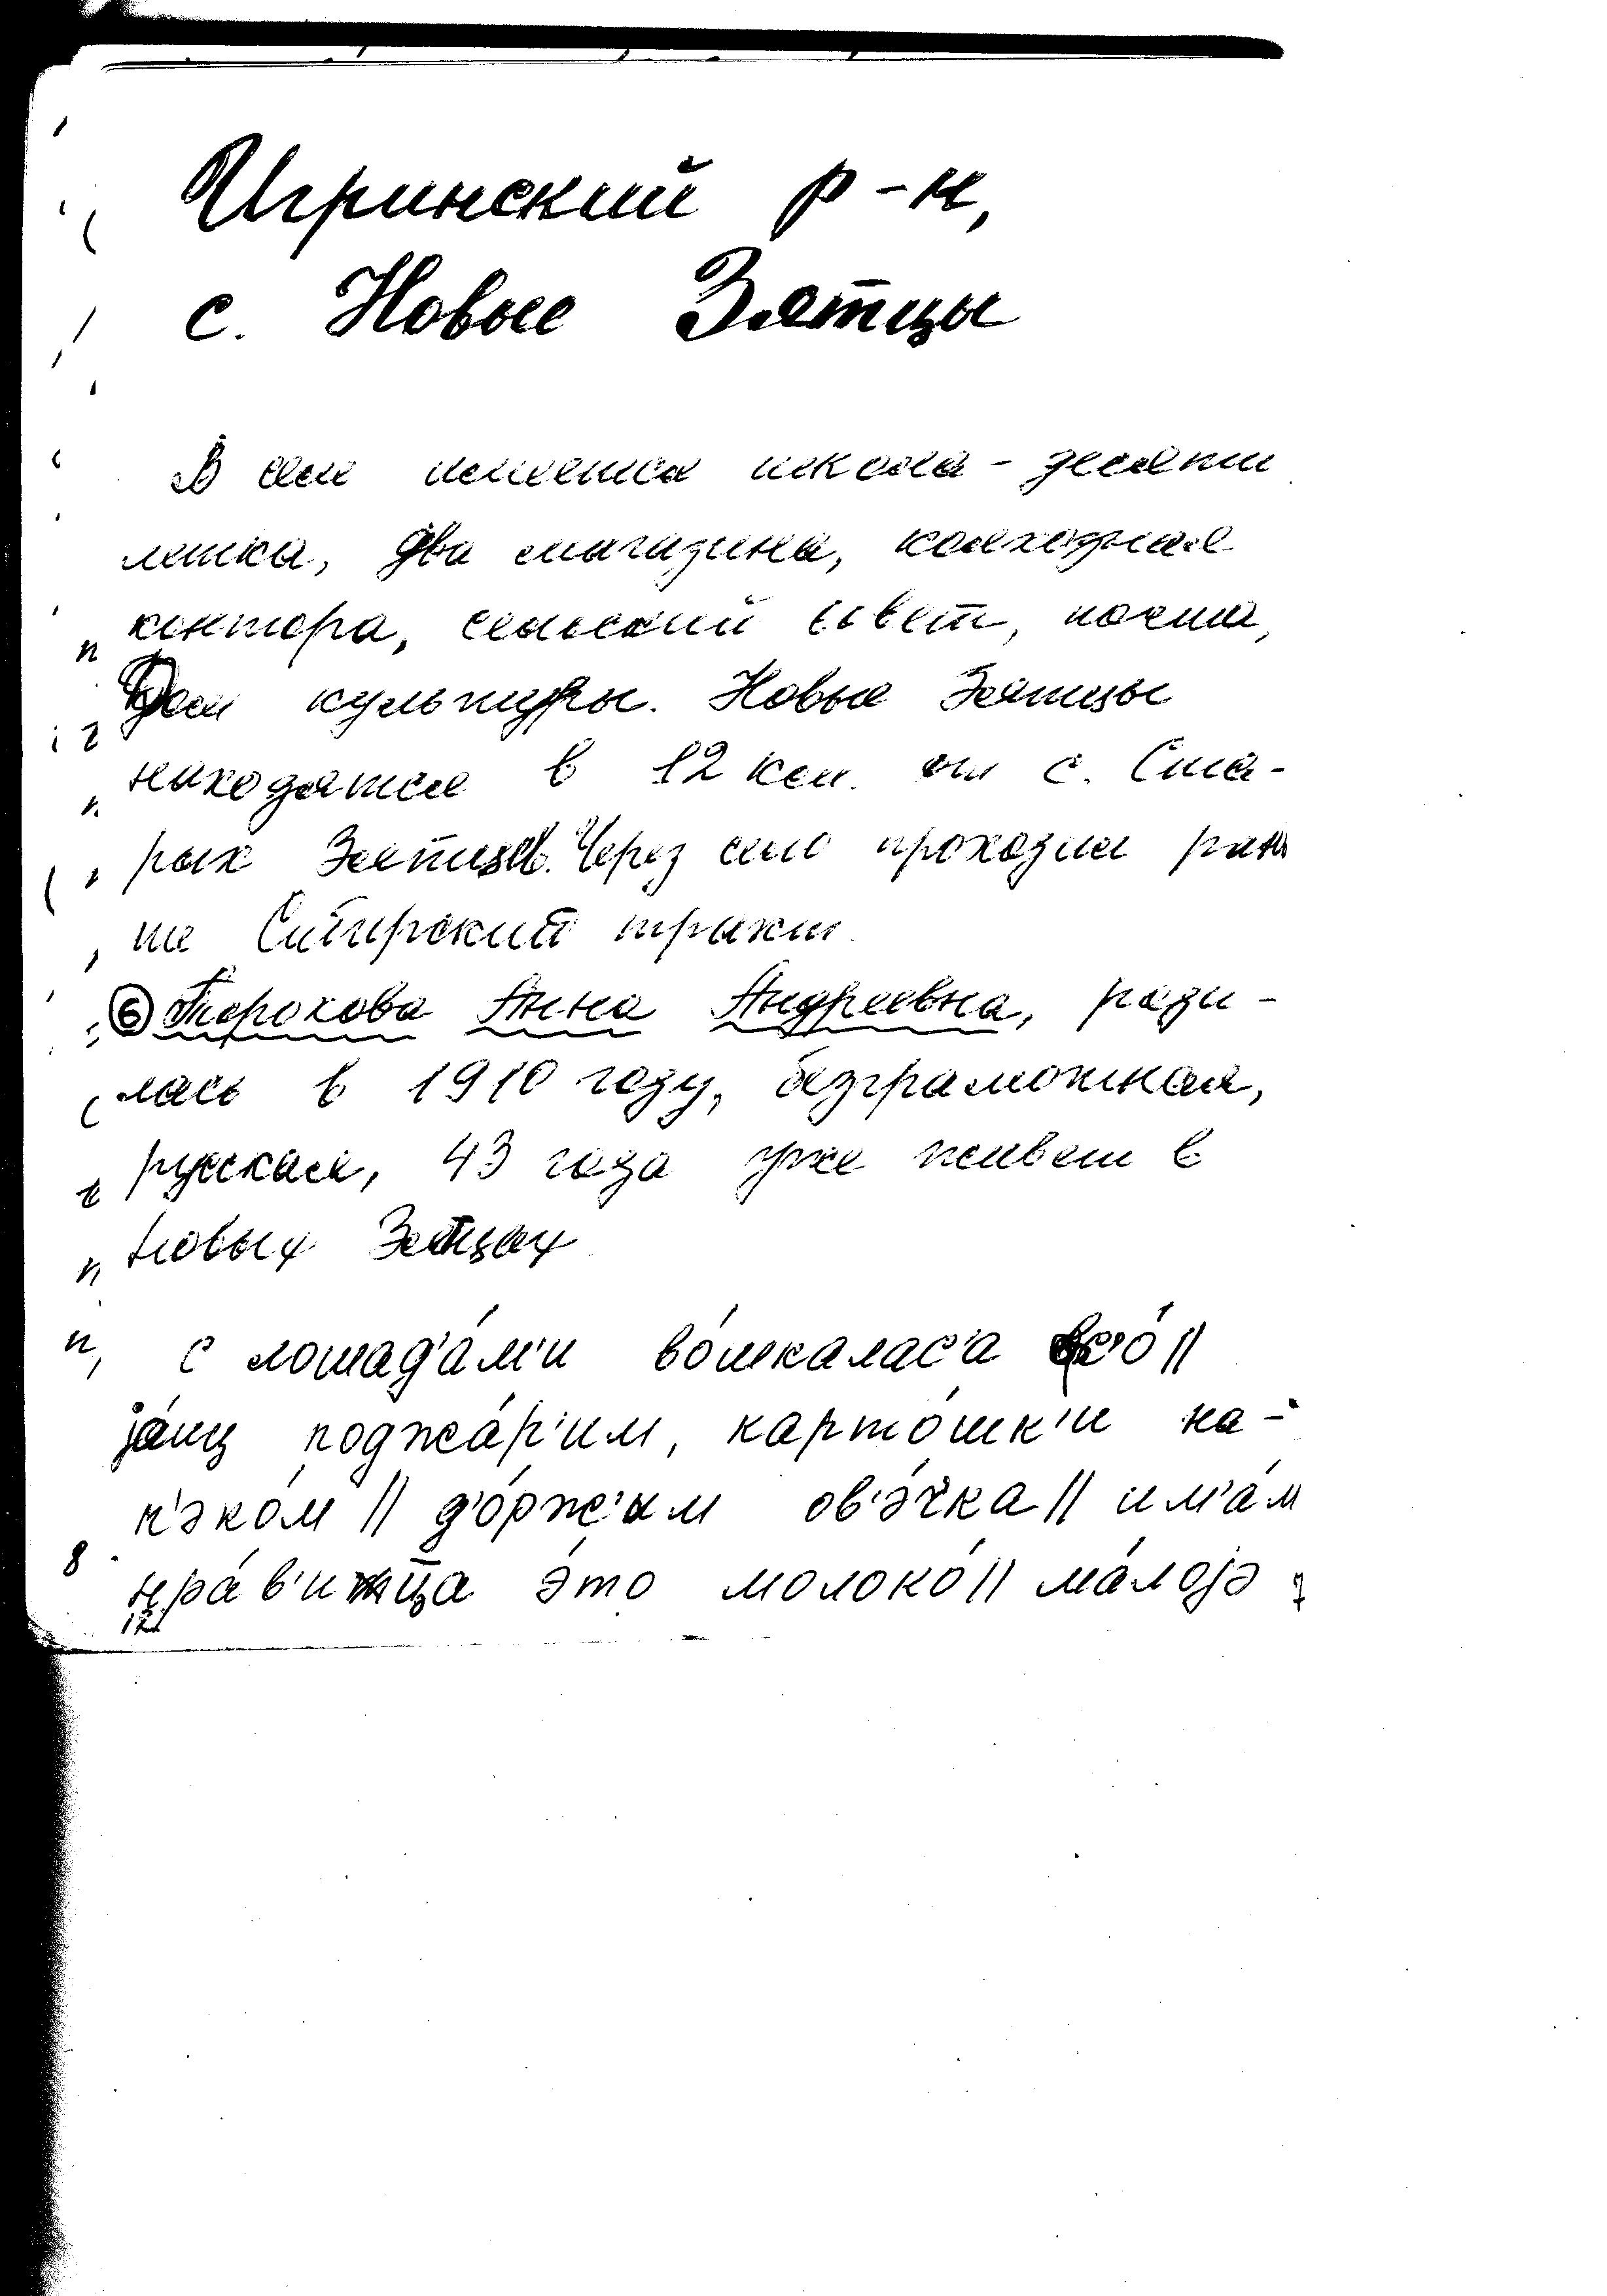 Игринский р-н,
с. Новые Зятцы
В селе имеется школа - десяти
летка, два магазина, колхозная
контора, сельский совет, почта,
Дом культуры. Новые Зятцы
находятся в 12 км. от с. Ста-
рых Зятцев. Через село проходил рань
ше Сибирский тракт.
⑥ Торохова Анна Андреевна, роди-
лась в 1910 году, безграмотная,
русская, 43 года уже живет в
Новых Зятцах
с лошад'а́м'и во́шкалас'а вс'о́ //
jа́иц поджа́р'им, карто́шк'и на-
п'эко́м // д'о́рж'им ов'э́чка // им'а́м
нра́в'ицца э́то молоко́ // ма́лоjэ